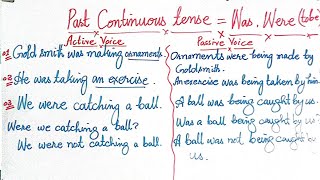 Past Continuous tense = Was. Were (tobe
Active Voice
Passive Voice
01 Gold smith was making ornaments.
Ornaments were being made by
Goldsmith.
02 He was taking an exercise.
An exercise was being taken by him.
03 We were catching a ball.
A ball was being caught by us.
Were we catching a ball?
Was a ball being caught by us?
We were not catching a ball.
A ball was not being caught by
us.